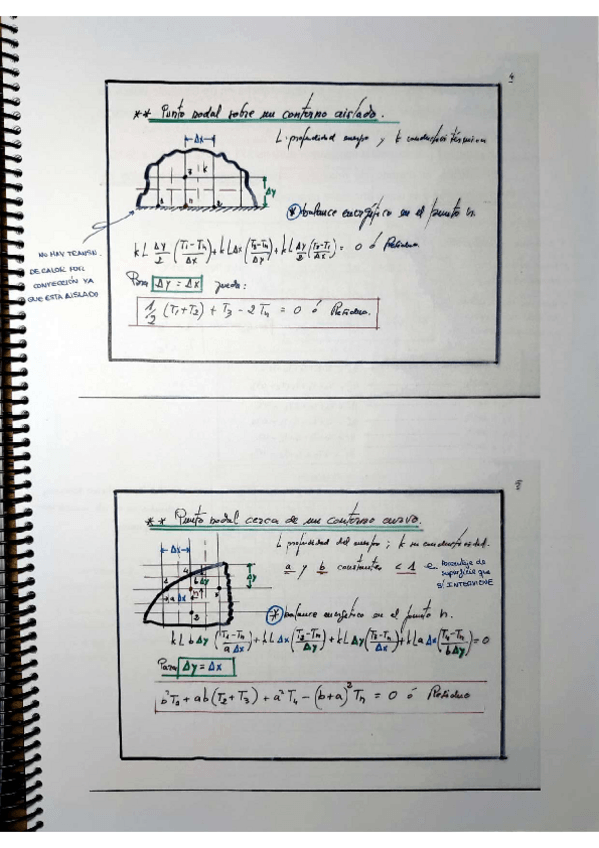 4
** Punto nodal sobre un contorno aislado.
L. profundidad cuerpo y k conductividad térmica
Δx
3
k
Δy
1 n 2
* balance energético en el punto n.
NO HAY TRANSM.
DE CALOR POR
CONVECCIÓN YA
QUE ESTA AISLADO
kL Δy/2 (T1-Tn/Δx) + kLΔx (T3-Tn/Δy) + kL Δy/2 (T2-Tn/Δx) = 0 ó Residuo.
Para Δy = Δx queda:
1/2 (T1+T2) + T3 - 2Tn = 0 ó Residuo.
5
** Punto nodal cerca de un contorno curvo.
L profundidad del cuerpo ; k su conductividad.
Δx
a y b constantes < 1
porcentaje de
superficie que
SÍ INTERVIENE
4
bΔy
Δy
1
aΔx
n
* balance energético en el punto n.
kLbΔy (T1-Tn/aΔx) + kLΔx (T2-Tn/Δy) + kLΔy (T3-Tn/Δx) + kLaΔx (T4-Tn/bΔy) = 0
Para Δy = Δx
b²T1 + ab(T2+T3) + a²T4 - (b+a)²Tn = 0 ó Residuo